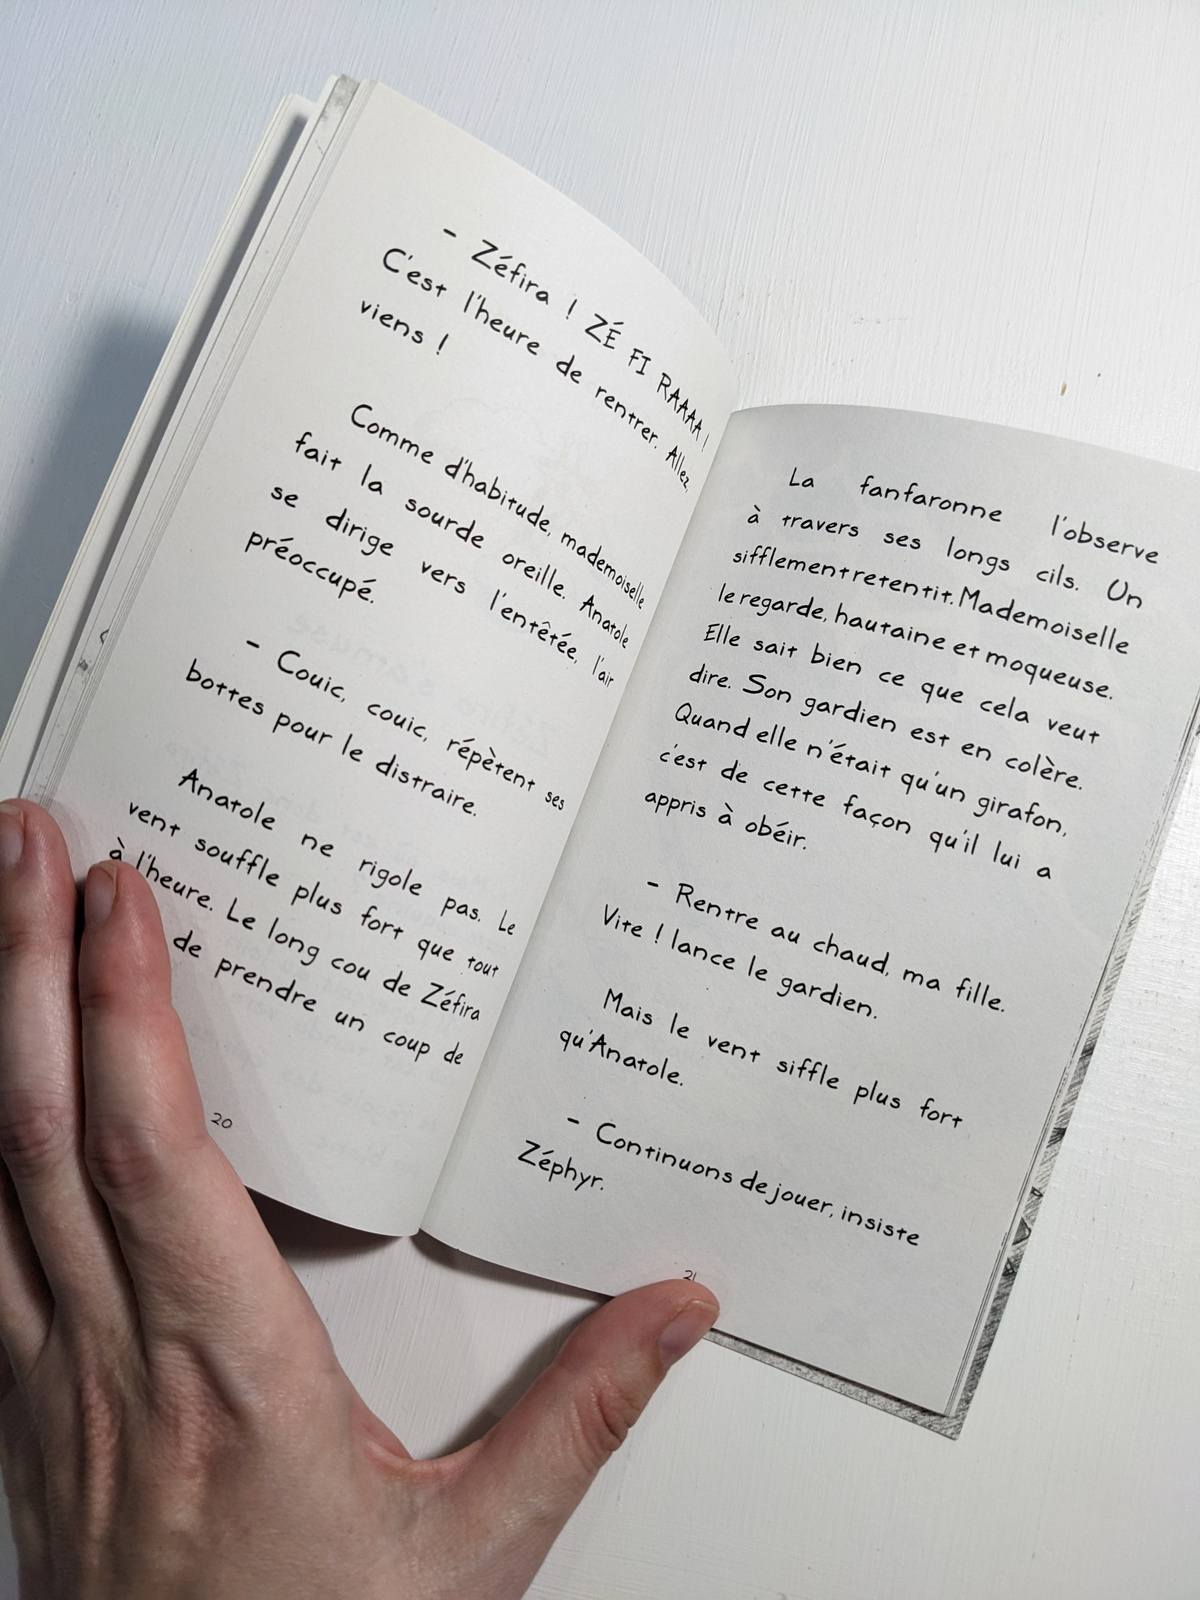 - Zéfira ! ZÉ FI RAAAA !
C'est l'heure de rentrer. Allez,
viens !
Comme d'habitude, mademoiselle
fait la sourde oreille. Anatole
se dirige vers l'entêtée, l'air
préoccupé.
- Couic, couic, répètent ses
bottes pour le distraire.
Anatole ne rigole pas. Le
vent souffle plus fort que tout
à l'heure. Le long cou de Zéfira
de prendre un coup de
20
La fanfaronne l'observe
à travers ses longs cils. Un
sifflement retentit. Mademoiselle
le regarde, hautaine et moqueuse.
Elle sait bien ce que cela veut
dire. Son gardien est en colère.
Quand elle n'était qu'un girafon,
c'est de cette façon qu'il lui a
appris à obéir.
- Rentre au chaud, ma fille.
Vite ! lance le gardien.
Mais le vent siffle plus fort
qu'Anatole.
- Continuons de jouer, insiste
Zéphyr.
21